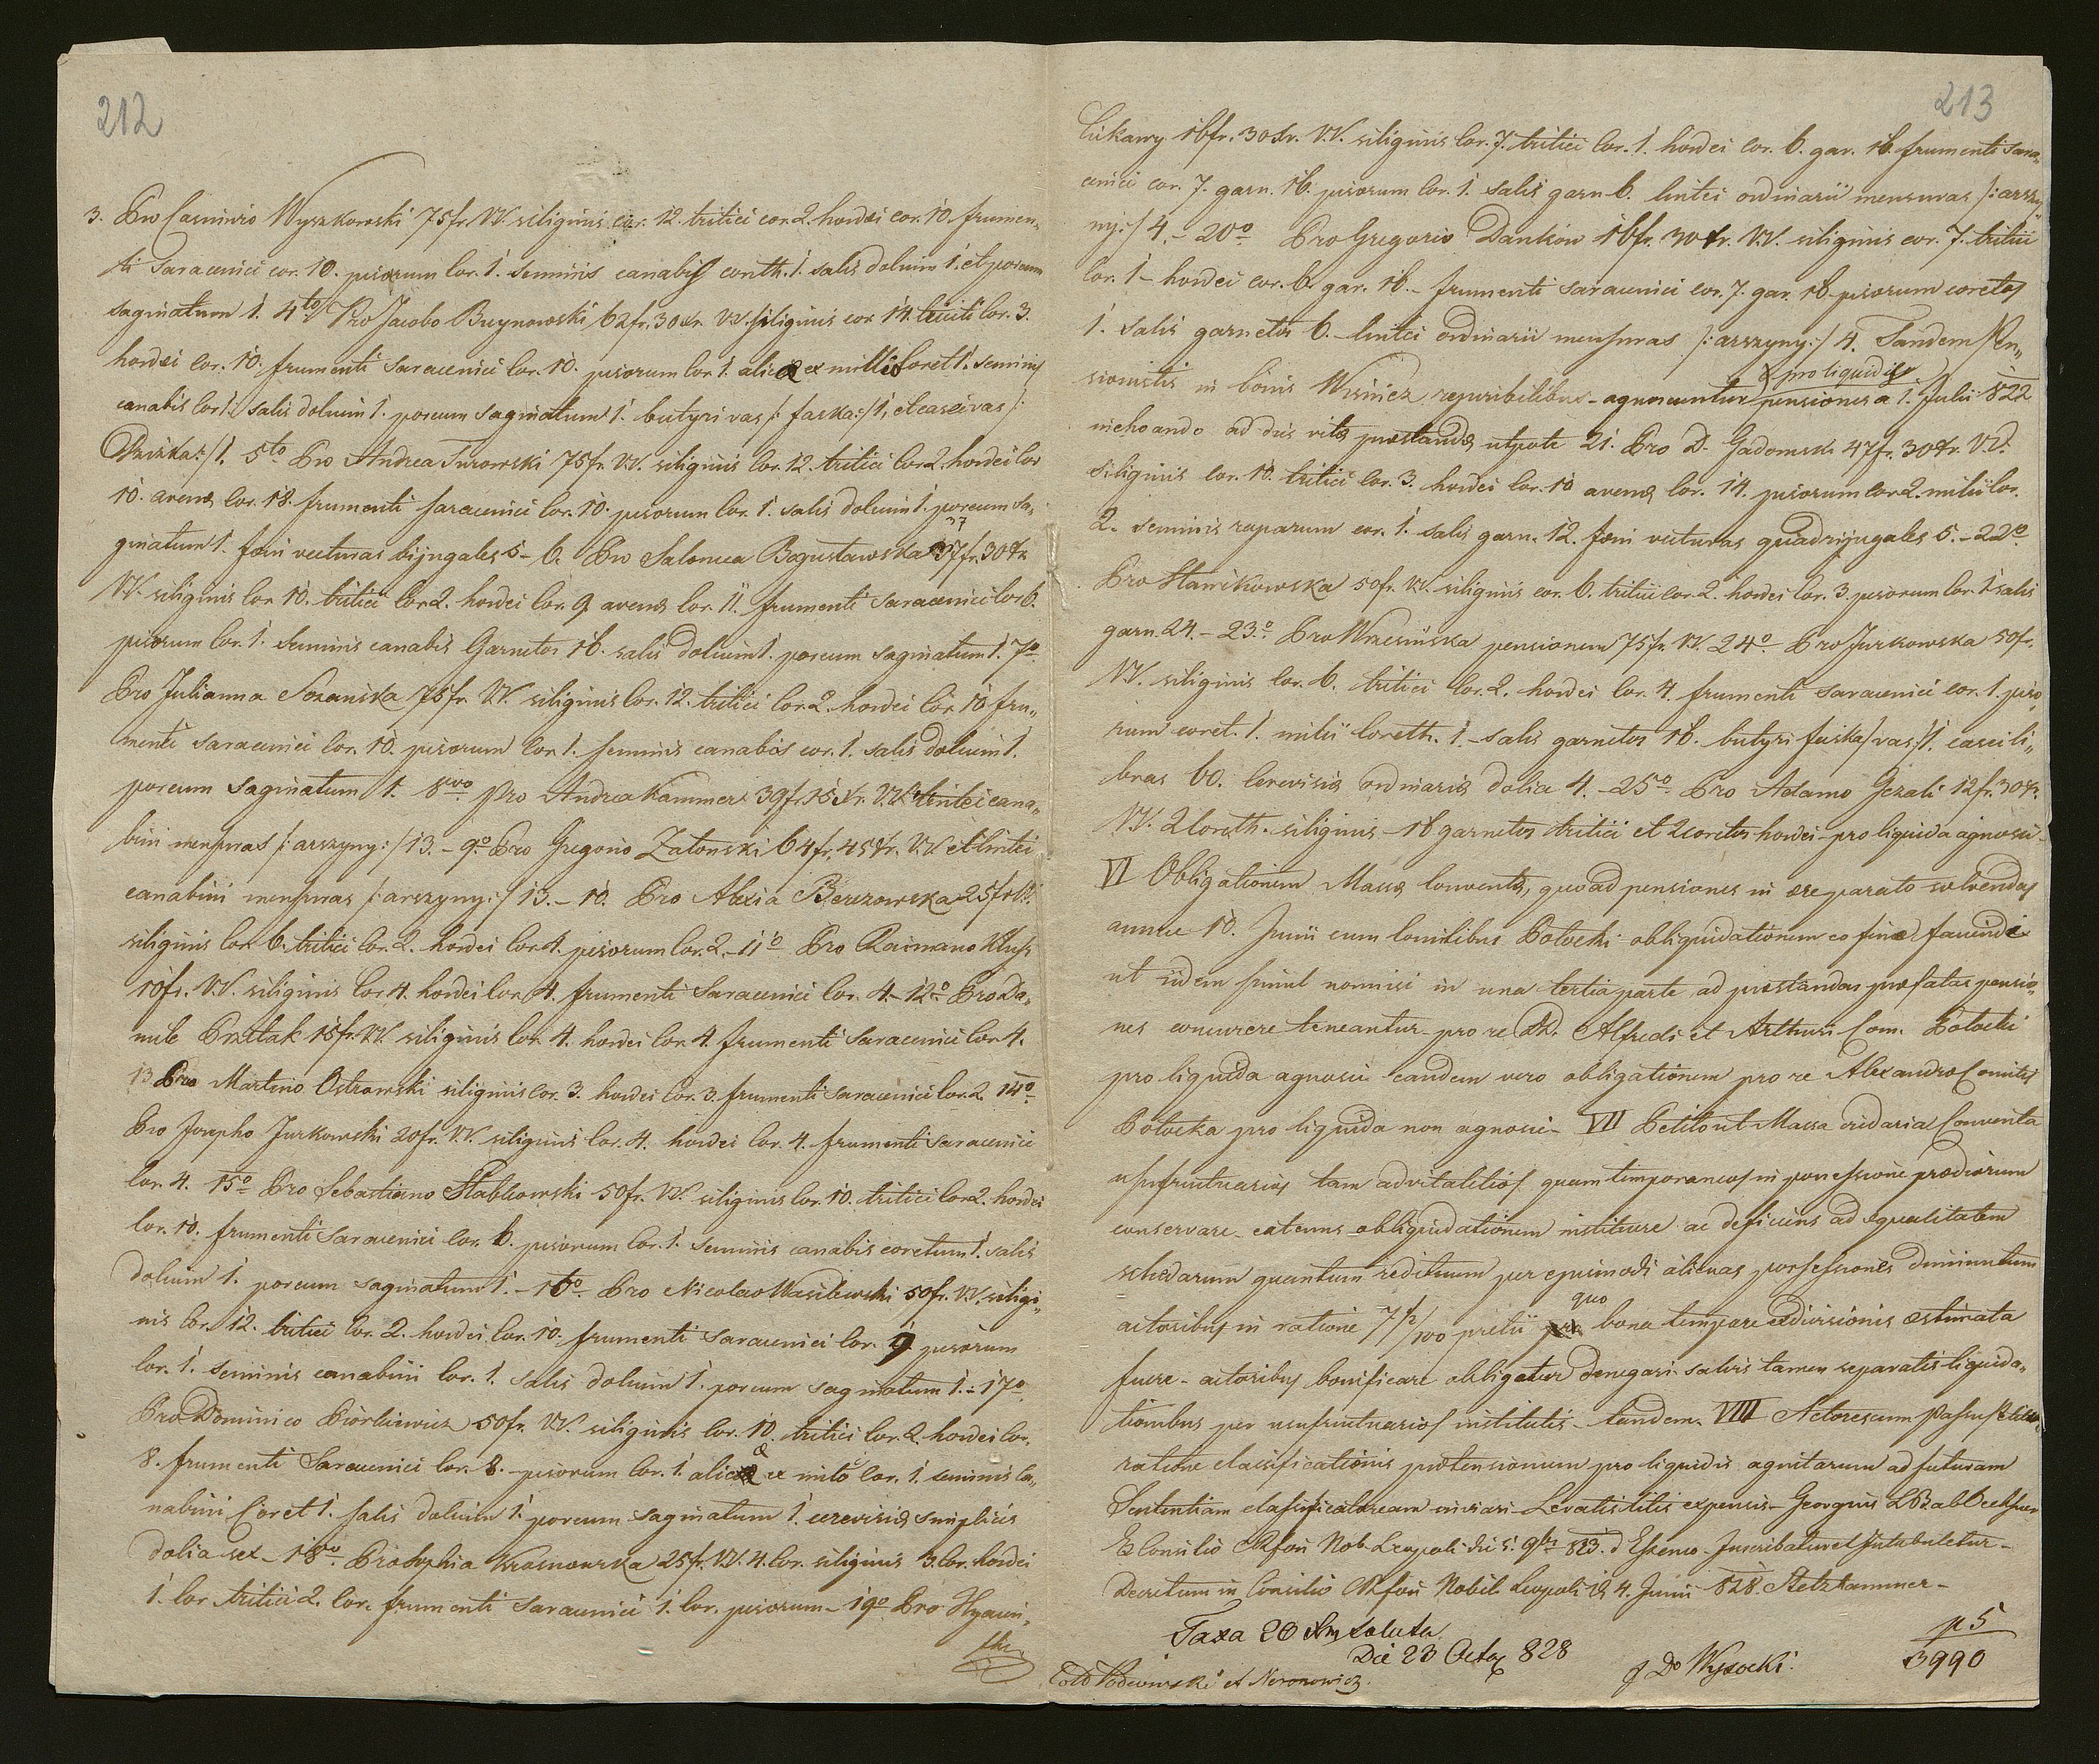 212
3. Pro Casimiro Wyszkowski 75 fr. W.W. siliginis cor. 12. tritici cor. 2. hordei cor. 10. frumen„
ti saracenici cor. 10. pisorum cor. 1. seminis canabis coreth. 1. salis dolium 1. et porcum
saginatum 1. 4to Pro Jacobo Buynowski 62 fr. 30 xr. W.W. siliginis cor. 14. tritici cor. 3.
hordei cor. 10. frumenti saracenici cor. 10. pisorum cor. 1. alicæ ex milio coret 1. seminis
canabis cor. 1. salis dolium 1. porcum saginatum 1. butyri vas /: faska :/ 1, et casei vas /:
Dzizka :/ 1. 5to Pro Andrea Turowski 75 fr. W.W. siliginis cor. 12. tritici cor. 2. hordei cor.
10. avenæ cor. 18. frumenti saracenici cor. 10. pisorum cor. 1. salis dolium 1. porcum sa„
ginatum 1. foeni vecturas bijugales 5 – 6. Pro Salomea Bogusławska 37 fr. 30 xr.
W.W. siliginis cor. 10. tritici cor. 2. hordei cor. 9 avenæ cor. 11. frumenti saracenici cor. 6.
pisorum cor. 1. seminis canabis Garnetos 16. salis dolium 1. porcum saginatum 1. 7o
Pro Julianna Sozańska 75 fr. W.W. siliginis cor. 12. tritici cor. 2. hordei cor. 10 fru„
menti saracenici cor. 10. pisorum cor. 1. seminis canabis cor. 1. salis dolium 1.
porcum saginatum 1. 8vo Pro Andrea Kammer 39 fr. 15 xr. W.W. et lintei cana„
bini mensuras /: arszyny :/ 13. – 9o Pro Gregorio Zatonski 64 fr. 45 xr. W.W. et lintei
canabini mensuras /: arszyny :/ 13. – 10. Pro Alexia Berezowska 25 fr. W.W.
siliginis cor. 6. tritici cor. 2. hordei cor. 4. pisorum cor. 2. – 11o Pro Raimano
10 fr. W.W. siliginis cor. 4. hordei cor. 4. frumenti saracenici cor. 4. – 12o Pro Da„
niele 15 fr. W.W. siliginis cor. 4. hordei cor. 4. frumenti saracenici cor. 4.
13 Pro Martino Ostrowski siliginis cor. 3. hordei cor. 3. frumenti saracenici cor. 2 14o
Pro Josepho Jurkowski 20 fr. W.W. siliginis cor. 4. hordei cor. 4. frumenti saracenici
cor. 4. 15o Pro Sebastiano Słabkowski 50 fr. W.W. siliginis cor. 10. tritici cor. 2. hordei
cor. 10. frumenti saracenici cor. 6. pisorum cor. 1. seminis canabis coretum 1. salis
dolium 1. porcum saginatum 1. – 16o Pro Nicolao Wasilewski 50 fr. W.W. siligi„
nis cor. 12. tritici cor. 2. hordei cor. 10. frumenti saracenici cor. 9 pisorum
cor. 1. seminis canabini cor. 1. salis dolium 1. porcum saginatum 1. – 17o
Pro Dominico Piorkiewicz 50 fr. W.W. siliginis cor. 10. tritici cor. 2. hordei cor.
8. frumenti saracenici cor. 8. – pisorum cor. 1. alicæ ex milio cor. 1. seminis ca„
nabini Coret 1. salis dolium 1. porcum saginatum 1. cerevisiæ simplicis
dolia sex – 18vo Pro Sophia Krasnowska 25 fr. W.W. 4. cor. siliginis 3. cor. hordei
1. cor. tritici 2. cor. frumenti saracenici 1. cor. pisorum – 19o Pro Hyacin„
tho
213
Cukarry 16 fr. 30 xr. W.W. siliginis cor. 7. tritici cor. 1. hordei cor. 6. gar. 16. frumenti sara„
cenici cor. 7. garn. 16. pisorum cor. 1. salis garn. 6. lintei ordinarii mensuras /: arszy„
ny :/ 4. – 20o Pro Gregorio Dankow 16 fr. 30 xr. W.W. siliginis cor. 7. tritici
cor. 1 – hordei cor. 6. gar. 16. – frumenti saracenici cor. 7. gar. 16 – pisorum coretos
1. salis garnetos 6. – lintei ordinarii mensuras /: arszyny :/ 4. Tandem Pen„
sionistis in bonis Wisnicz reperibilibus – agnoscuntur pro liquidis pensiones a 1. Julii 822
inchoando ad dies vitæ præstandæ utpote 21. Pro D. Gadomski 47 fr. 30 xr. W.W.
siliginis cor. 10. tritici cor. 3. hordei cor. 10 avenæ cor. 14. pisorum cor. 2. milii cor.
2. seminis raparum cor. 1. salis garn. 12. foeni vecturas quadrijugales 5. – 22o
Pro Stanikowska 50 fr. W.W. siliginis cor. 6. tritici cor. 2. hordei cor. 3. pisorum cor. 1 salis
garn. 24. – 23o Pro Wrzesińska pensionem 75 fr. W.W. 24o – Pro Jurkowska 50 fr.
W.W. siliginis cor. 6. tritici cor. 2. hordei cor. 4. frumenti saracenici cor. 1. piso„
rum coret. 1. milii coreth. 1. – salis garnetos 16. butyri faska /vas/ 1. casei li„
bras 60. cerevisiæ ordinariæ dolia 4. – 25o Pro Adamo Gezali 12 fr. 30 xr.
W.W. 2 coreth. siliginis – 16 garnetos tritici et 2 coretos hordei – pro liquida agnosci –
VI Obligationem Massæ conventæ, quoad pensiones in ære parato solvendas
annue 10. Junii cum Comitibus Potocki obliquidationem eo fine faciendi
ut iidem simul nonnisi in una tertia parte ad præstandas præfatas pensio„
nes concurrere teneantur – pro re DD. Alfredi et Arthuri Com. Potocki
pro liquida agnosci eandem vero obligationem pro re Alexandro Comitis
Potocka pro liquida non agnosci – VII Petito ut Massa cridaria Conventa
usufructuarios tam advitalitios quam temporaneos in possessione prædiorum
conservare – eatenus obliquidationem instituere ac deficiens ad æqualitatem
schedarum quantum redituum per ejusmodi alienas possessiones diminutum
actoribus in ratione 7 1/2/100 pretii quo bona tempore exdivisionis æstimata
fuere – actoribus bonificare obligetur denegari salvis tamen separatis liquida„
tionibus per usufructuarios institutis – tandem. VIII Actores cum passu petiti
ratione classificationis prætensionum pro liquidis agnitarum ad futuram
Sententiam classificatoream inviari – Levatis litis expensis – Georgius Oechsner
Ex Consilio Cæs. Rei fori Nob. Leopoli die 5. 9bris 823. Inscribatur et Intabuletur –
Decretum in Consilio C.R. fori Nobil. Leopoli die 4. Junii 828. Stetzhammer –
Taxa 20 xr. soluta
Die 23 Octob 828
Wysocki.
p 5
3990
et Neronowicz.